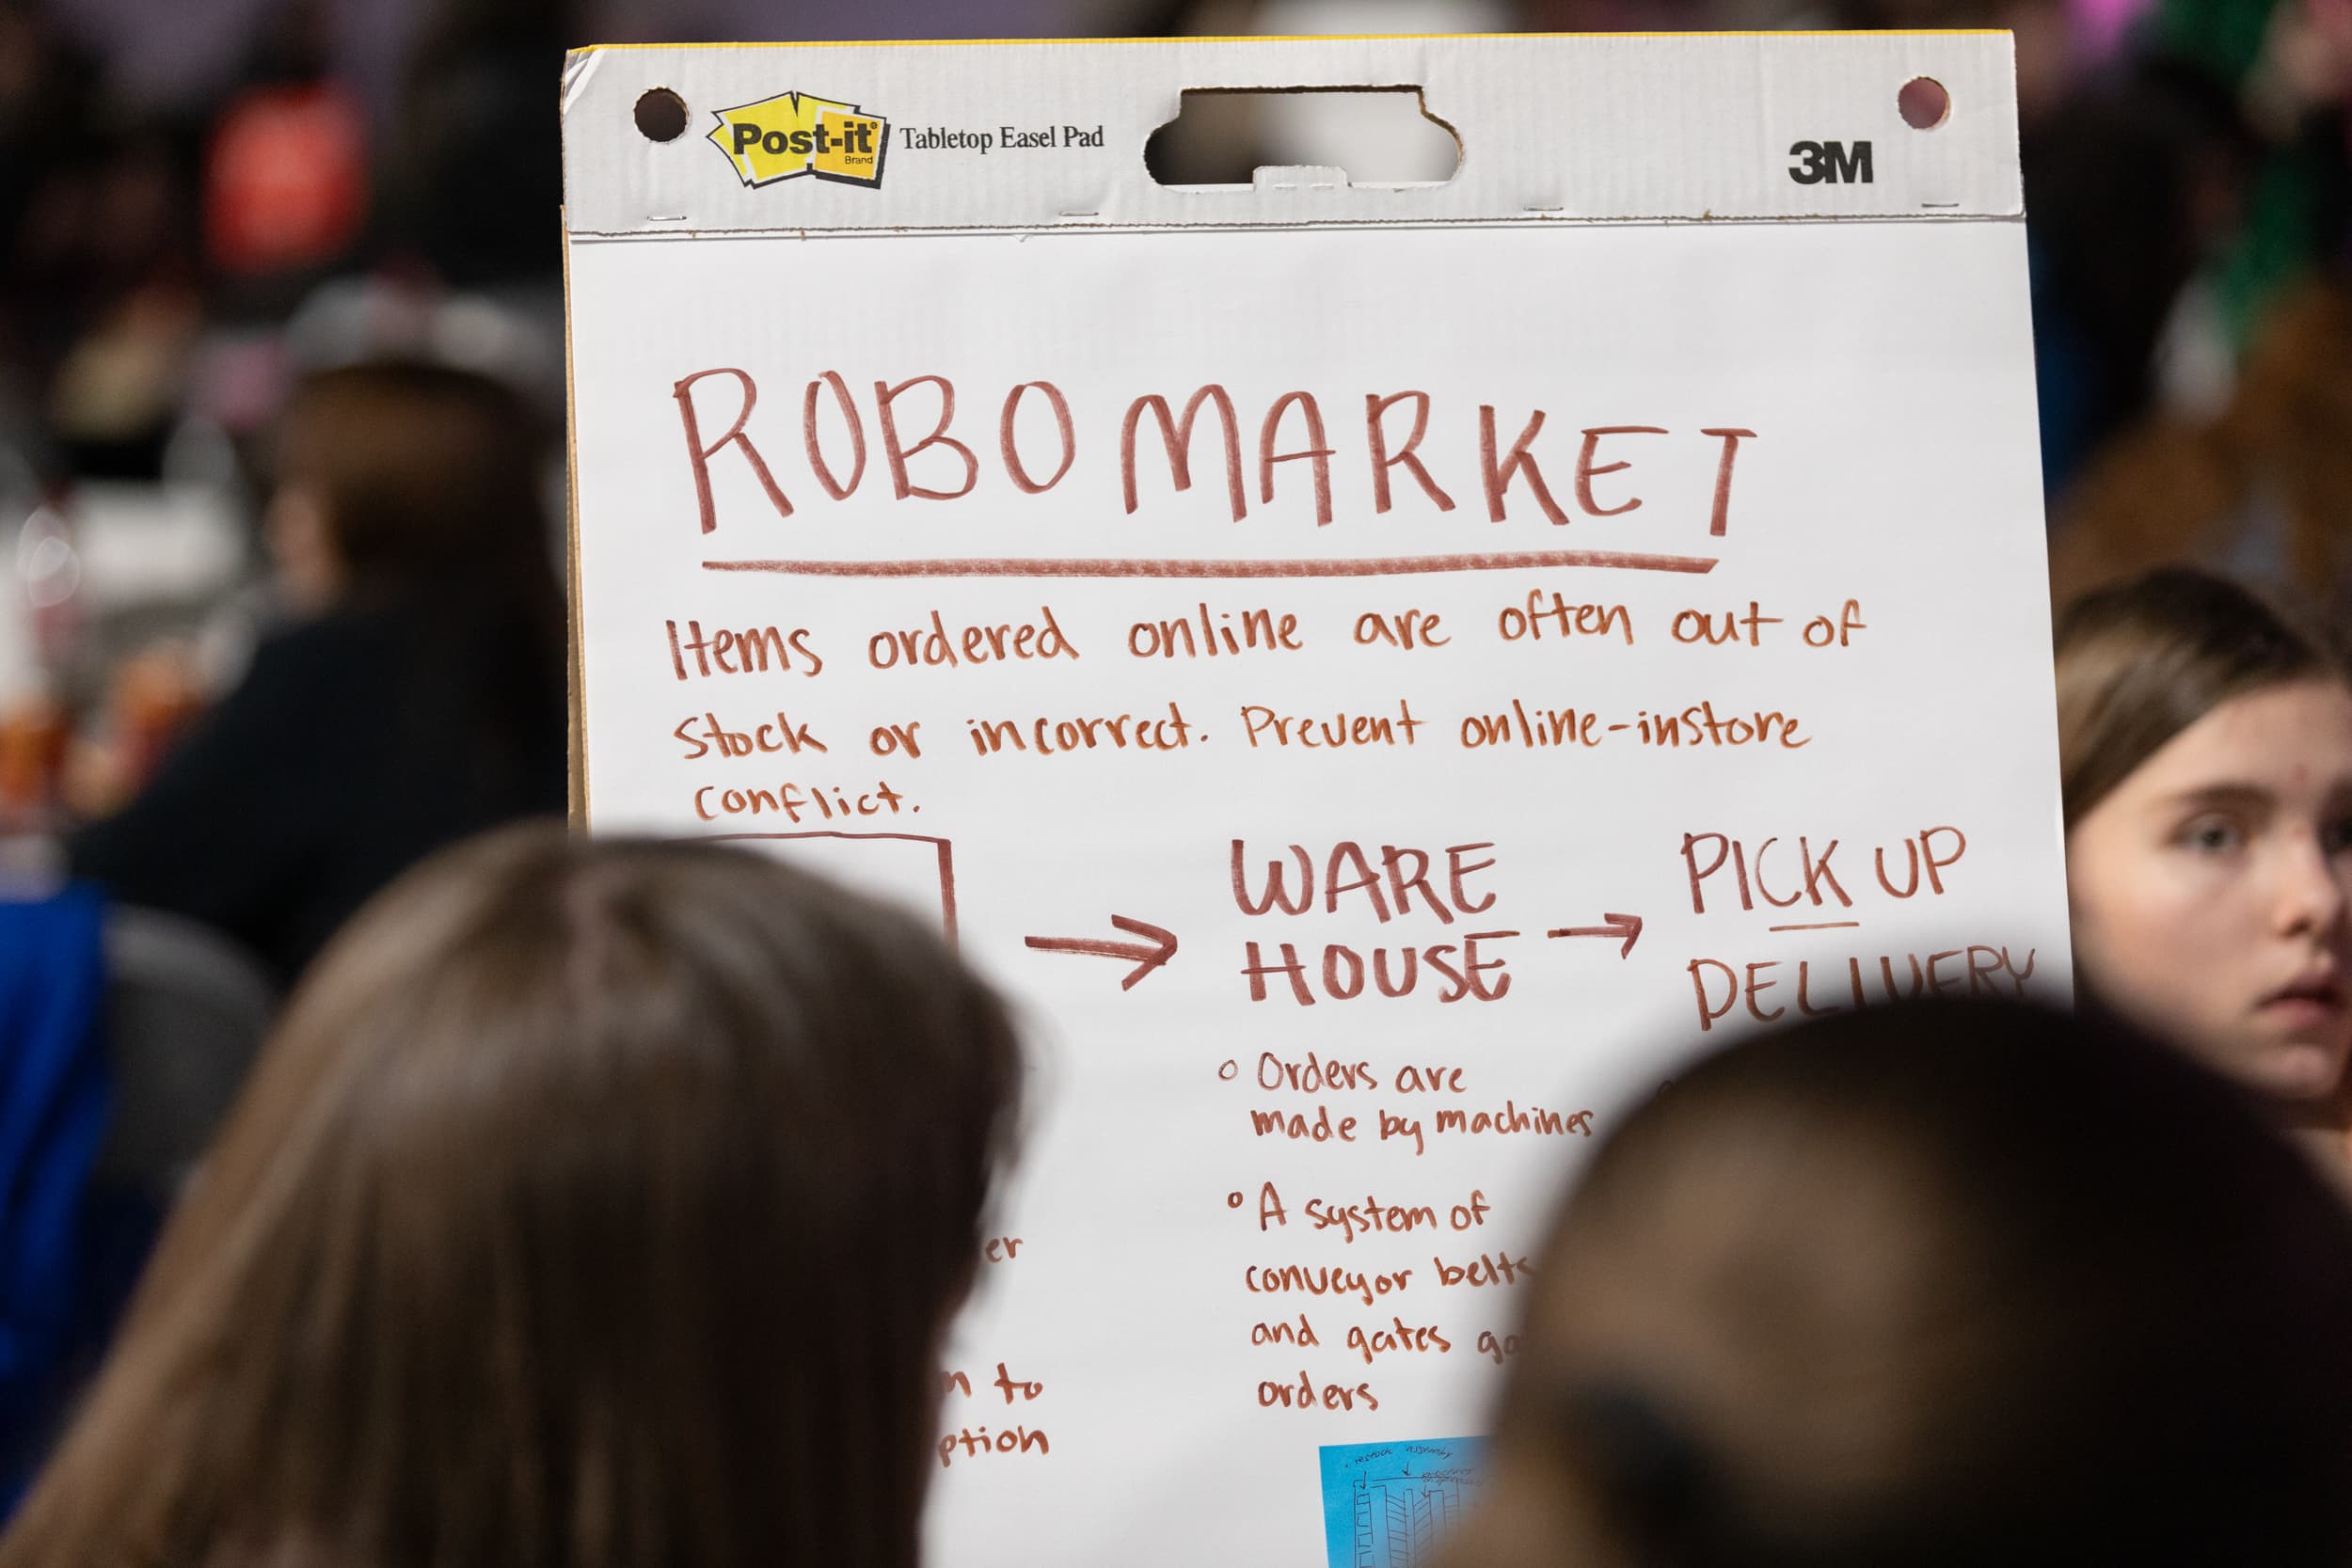 Post-it® Brand Tabletop Easel Pad
3M
ROBO MARKET
Items ordered online are often out of
stock or incorrect. Prevent online-instore
conflict.
WARE
HOUSE
PICK UP
DELIVERY
o Orders are
made by machines
o A system of
conveyor belts
and gates
orders
to